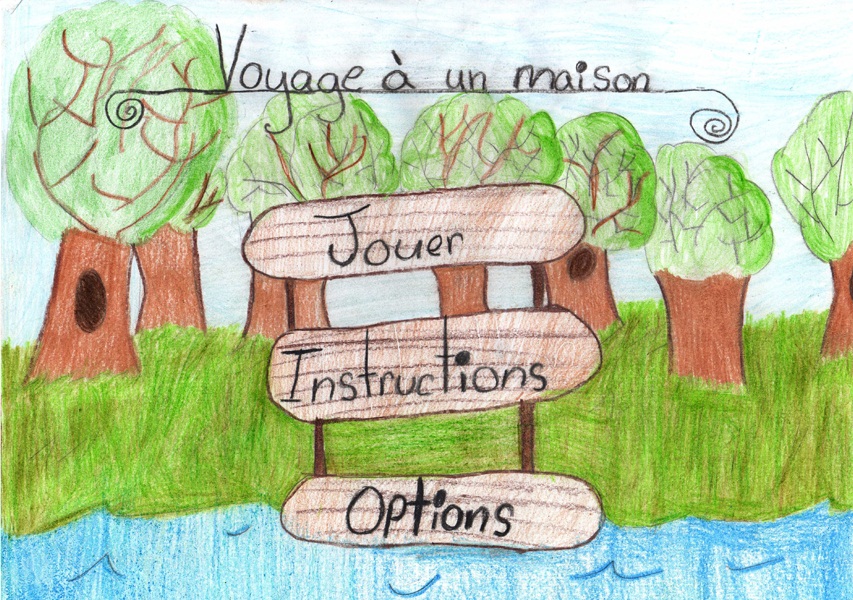 Voyage à un maison
Jouer
Instructions
Options